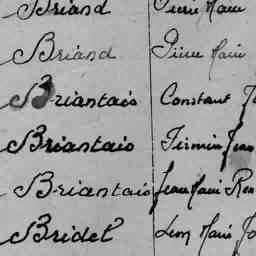 Briand Pierre Marie
Briand Pierre Marie
Briantais Constant
Briantais Firmin Jean
Briantais Jean Marie Ren
Bridel Léon Marie